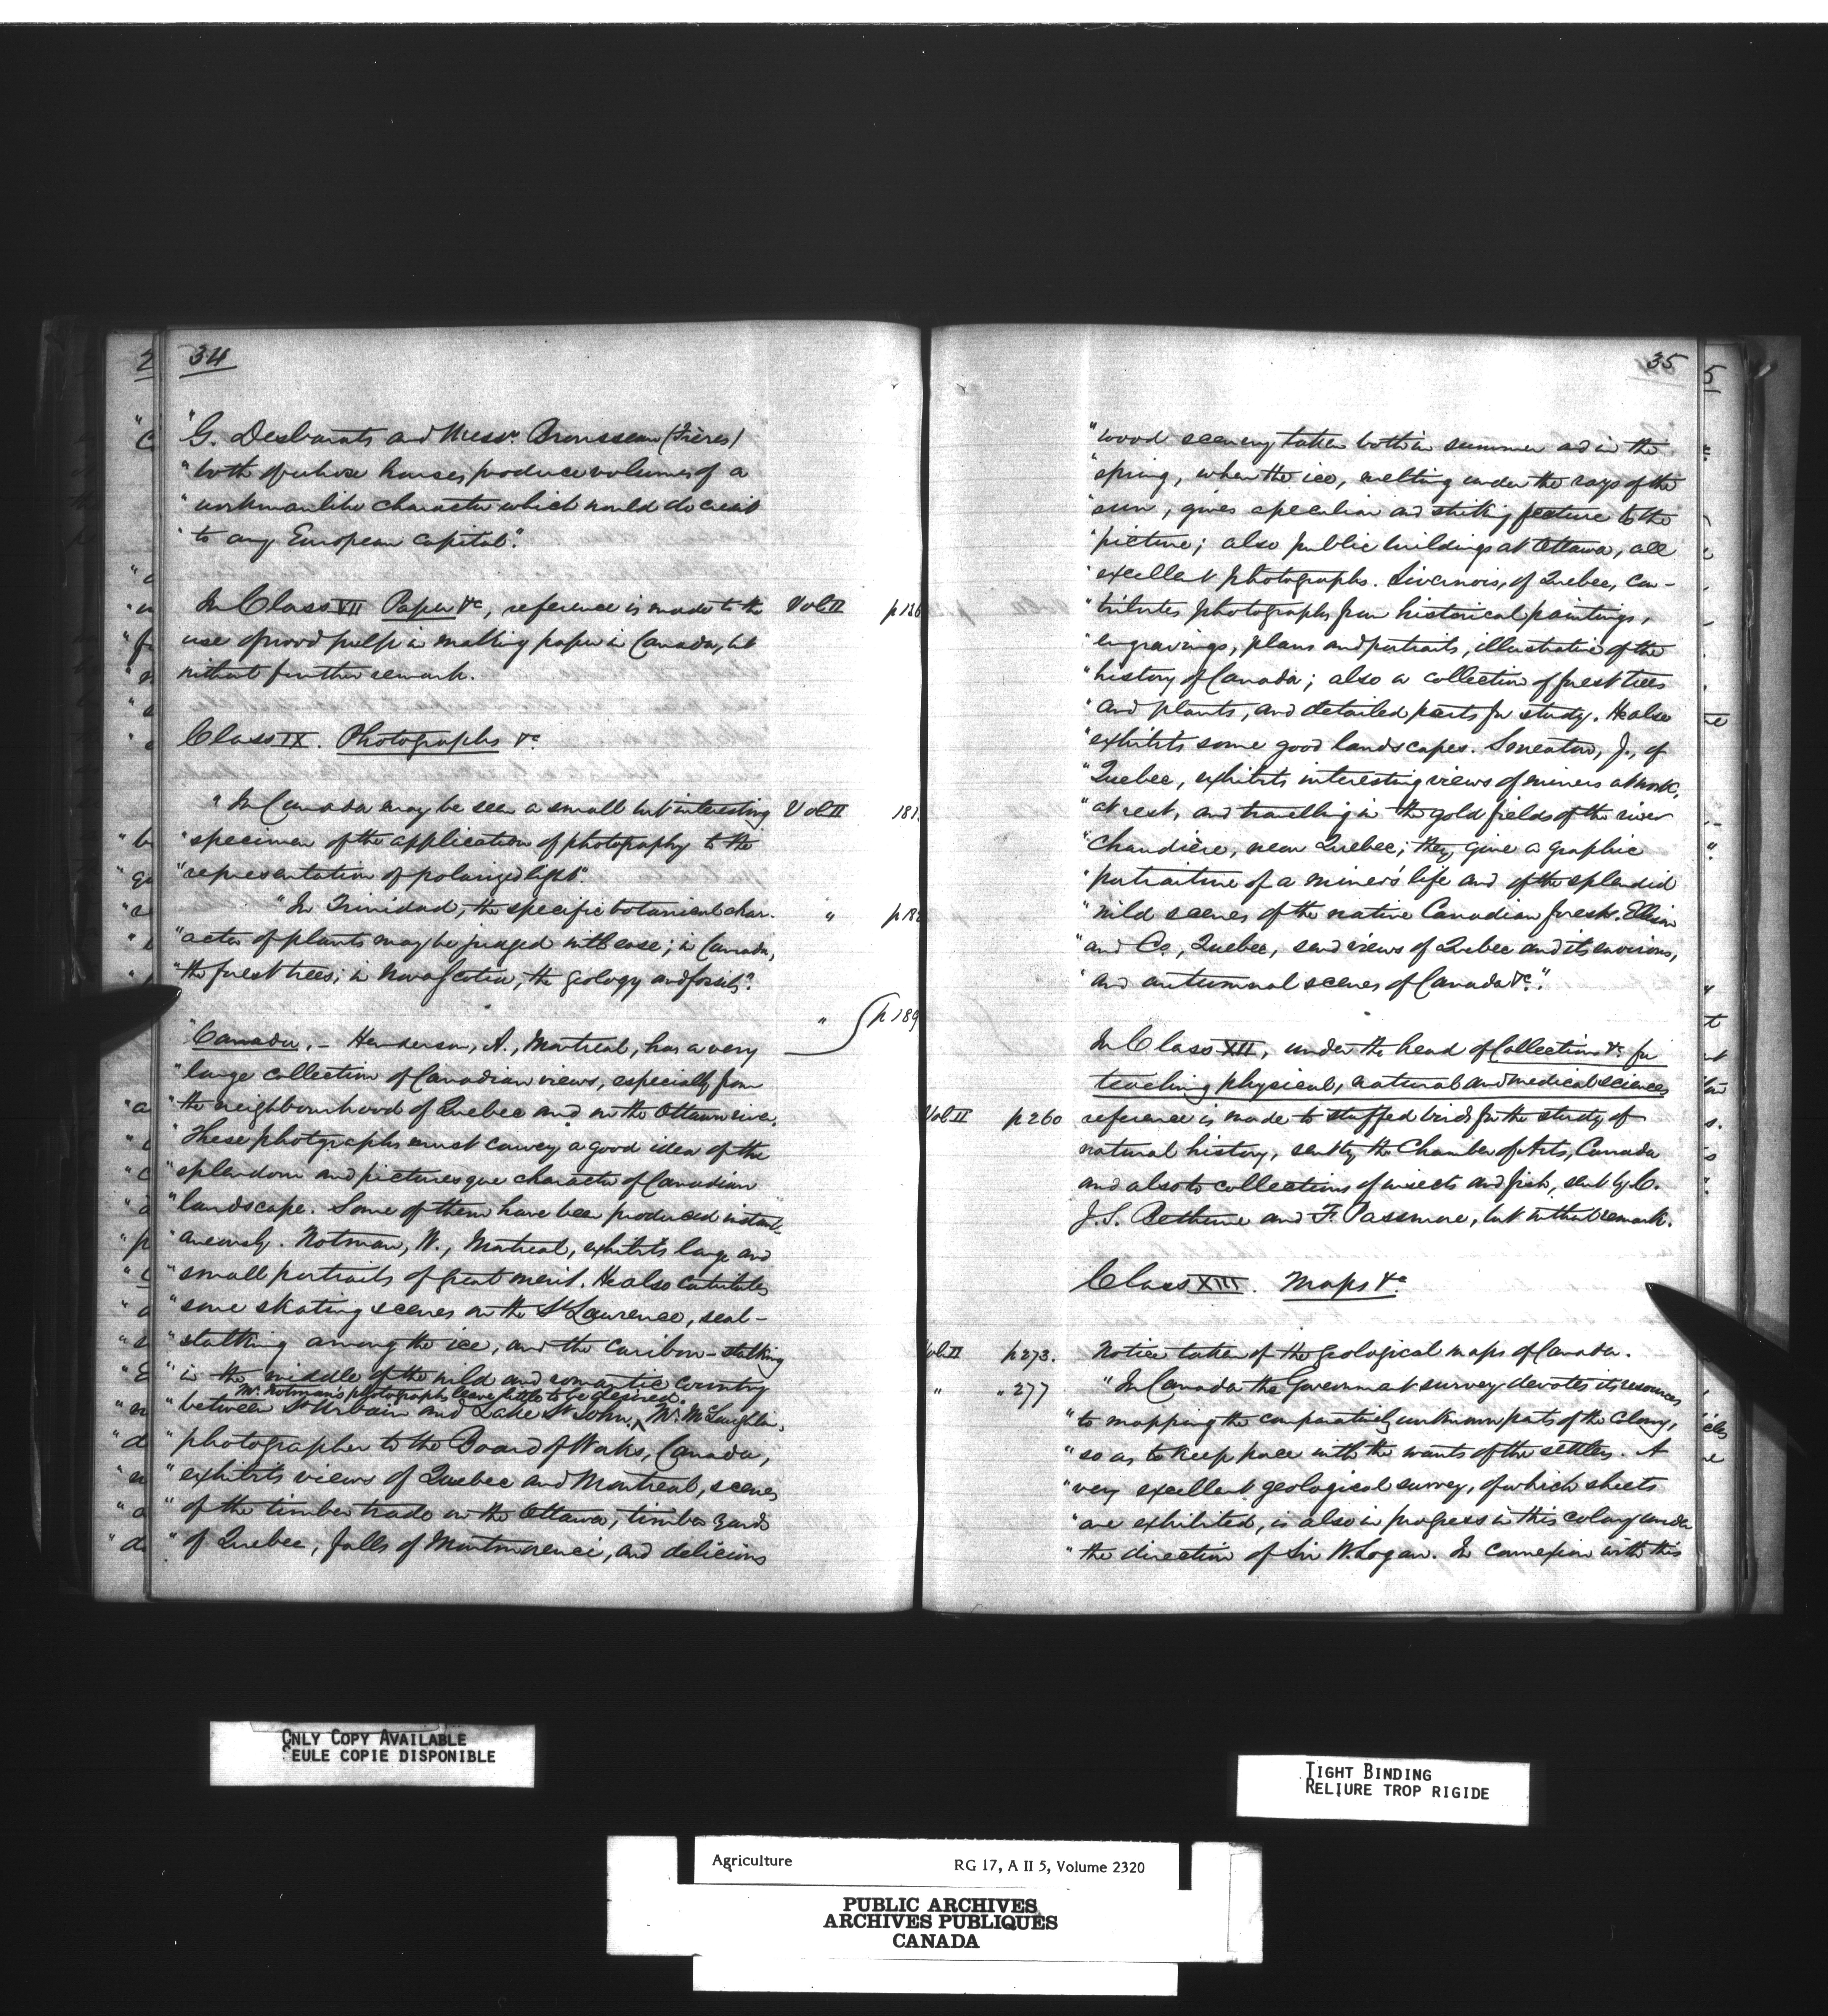 34
"G. Desbarats and Messrs. Brousseau (Frères)
"both of whose houses produce volumes of a
"workmanlike character which would do credit
"to any European capital".
In Class VII Paper &c, reference is made to the Vol II p 186
use of wood pulp in making paper in Canada, but
without further remark.
Class IX. Photographs &c
"In Canada may be seen a small but interesting Vol II 181.
"specimen of the application of photography to the
"representation of polarized light".
"In Trinidad, the specific botanical char- " p 182
"acter of plants may be judged with ease; in Canada,
"the forest trees; in Nova Scotia, the geology and fossils".
" p 189
"Canada. – Henderson, A., Montreal, has a very
"large collection of Canadian views, especially from
"the neighbourhood of Quebec and on the Ottawa river.
"These photgraphs must convey a good idea of the
"splendour and picturesque character of Canadian
"landscape. Some of them have been produced instant-
"aneously. Notman, W., Montreal, exhibits large and
"small portraits of great merit. He also contributes
"some skating scenes on the St Lawrence, seal-
"stalking among the ice, and the caribou-stalking
"in the middle of the wild and romantic country
Mr. Notman's photographs leave little to be desired.
"between St Urbain and Lake St John. Mr. McLaughlin,
"photographer to the Board of Works, Canada,
"exhibits views of Quebec and Montreal, scenes
"of the timber trade on the Ottawa, timber yards
"of Quebec, falls of Montmorenci, and delicious
35
"wood scenery taken both in summer and in the
"spring, when the ice, melting under the rays of the
"sun, gives a peculiar and striking feature to the
"picture; also public buildings at Ottawa, all
"excellent photographs. Livernois, of Quebec, con-
"tributes photographs from historical paintings,
"engravings, plans and portraits, illustrative of the
"history of Canada; also a collection of forest trees
"and plants, and detailed parts for study. He also
"exhibits some good landscapes. Smeaton, J., of
"Quebec, exhibits interesting views of miners at work,
"at rest, and travelling in the gold fields of the river
"Chaudière, near Quebec; they give a graphic
"portraiture of a miner's life and of the splendid
"wild scenes of the native Canadian forest. Ellison
"and Co., Quebec, send views of Quebec and its environs,
"and autumnal scenes of Canada &c".
In Class XII, under the head of Collections &c for
teaching physical, natural and medical sciences
Vol II p 260 reference is made to stuffed birds for the study of
natural history, sent by the Chamber of Arts, Canada
and also to collections of insects and fish, sent by C.
J. S. Bethune and F. Passmore, but without remark.
Class XIII. Maps &c
Vol II p 273. Notice taken of the geological maps of Canada.
" " 277 "In Canada the Government survey devotes its resources
"to mapping the comparatively unknown parts of the colony,
"so as to keep pace with the wants of the settlers. A
"very excellent geological survey, of which sheets
"are exhibited, is also in progress in this colony under
"the direction of Sir W. Logan. In connexion with this
ONLY COPY AVAILABLE
SEULE COPIE DISPONIBLE
TIGHT BINDING
RELIURE TROP RIGIDE
Agriculture RG 17, A II 5, Volume 2320
PUBLIC ARCHIVES
ARCHIVES PUBLIQUES
CANADA